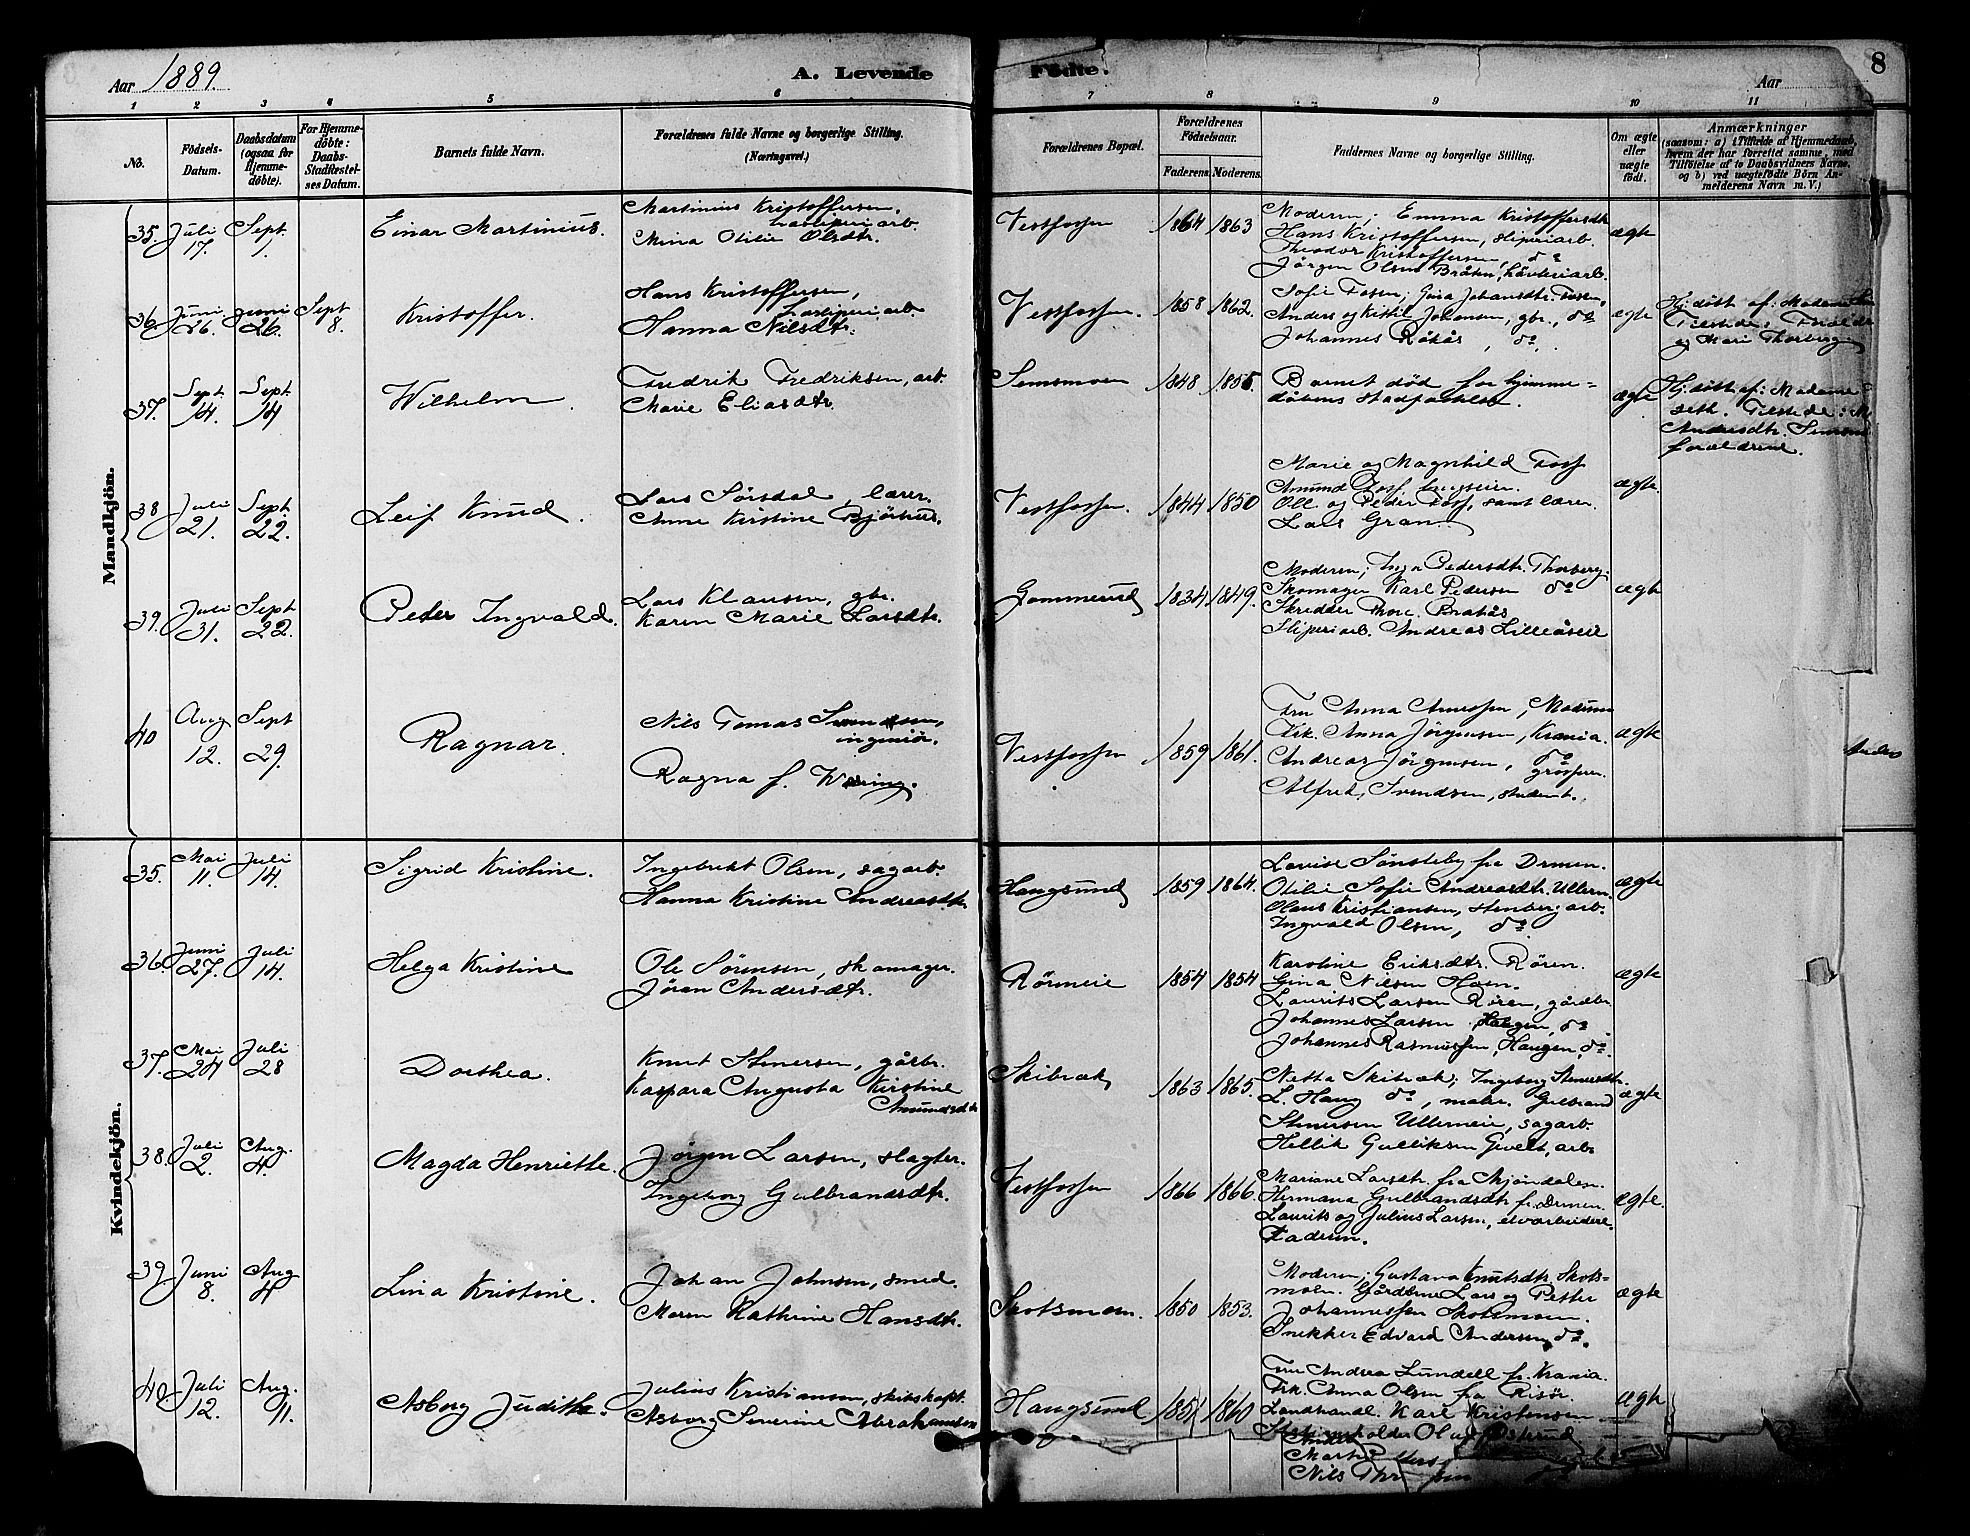 Aar 1889. A. Levende Fødte. Aar 8
1 2 3 4 5 6 7 8 9 10 11
No.
Fødsels-Datum.
Daabsdatum (ogsaa for Hjemmedøbte).
For Hjemmedøbte: Daabs-Stadfæstelses Datum.
Barnets fulde Navn.
Forældrenes fulde Navne og borgerlige Stilling. (Næringsvei.)
Forældrenes Bopæl.
Forældrenes Fødselsaar.
Faderens. Moderens.
Faddernes Navne og borgerlige Stilling.
Om ægte eller uægte født.
Anmærkninger
(saasom: a) i Tilfælde af Hjemmedaab, hvem der har forrettet samme, med Tilføielse af to Daabsvidners Navne, og b) ved uægtefødte Børn Anmelderens Navn m. V.)
Mandkjøn.
35. Juli 17. Sept. 1. Einar Martinius.
Martinius Kristoffersen,
Mina Otilie Olsdtr.
Vestfossen 1864 1863
Moderen; Emma Kristoffersdtr
Hans Kristoffersen, sliperiarb.
Theodor Kristoffersen, do
Jørgen Olsen Bråten,
ægte
36. Juni 26. Juni 26. Sept 8. Kristoffer.
Hans Kristoffersen,
Hanna Nilsdtr.
Vestfossen. 1858 1862.
Sofie Fosen; Gina Johansdtr. Fosen,
Anders og Kittil Johansen, gbr., do
Johannes Røkås, do.
ægte
Hj.døbt af: Madame
Tilstede:
og Mari Thorberg
37. Sept 14. Sept 14 Wilhelm.
Fredrik Fredriksen, arb.
Marie Eliasdtr.
Semsmoen 1848 1855
Barnet død før hjemme=
dåbens stadfæstelse.
ægte
Hj.døbt af: Madame
Tilstede:
Andersdtr.
forældrene.
38 Juli 21. Sept. 22. Leif Knud.
Lars Sørsdal, lærer.
Anne Kristine Bjørhus.
Vestfossen. 1844 1850
Marie og Magnhild Foss
Amund Foss,
Ole og Peder Foss, samt lærer
Lars Gran.
ægte.
39. Juli 31. Sept 22. Peder Ingvald.
Lars Klausen, gbr.
Karen Marie Larsdtr.
Gommerud 1834 1849.
Moderen; Inga Pedersdtr. Thorberg.
Skomager Karl Pedersen do
Skrædder Thore Brakås
Sliperiarb. Andreas Lilleåseie
ægte
40 Aug 12. Sept 29. Ragnar.
Nils Tomas Svendsen,
ingeniør.
Ragna f. Wæring.
Vestfossen 1859 1861.
Fru Anna Anussen, Modum
Frk. Anna Jørgensen, Krania.
Andreas Jørgensen, do
grosserer.
Alfred Svendsen, student.
ægte
Anders
Kvindekjøn.
35. Mai 11. Juli 14. Sigrid Kristine.
Ingebrikt Olsen, sagarb.
Hanna Kristine Andreasdtr.
Haugsund 1859 1864.
Lovise Sønsteby fra Drmen.
Otilie Sofie Andreasdtr. Ullern.
Olaus Kristiansen, stenberg.arb.
Ingvald Olsen, do
ægte
36. Juni 27. Juli 14. Helga Kristine
Ole Sørensen, skomager.
Jøran Andersdtr.
Rørmeie 1854 1854
Karoline Eriksdtr. Røren.
Gina Nilsen Hoen.
Laurits Larsen Røren, gårdbr
Johannes Larsen Haugen, do
Johannes Rasmussen, Haugen, do
ægte
37. Mai 24 Juli 28 Dorthea.
Knut Stenersen, gårbr.
Kaspara Augusta Kirstine
Amundsdtr
Skibræk 1863 1865.
Netta Skibræk; Ingeborg Stenersdtr.
L. Haug do, maler. Gulbrand
Stenersen Ullerneie, sagarb.
Hellik Gulliksen Gevelt, arb.
ægte
38. Juli 2. Aug. 4. Magda Henriette.
Jørgen Larsen, slagter.
Ingeborg Gulbrandsdtr.
Vestfossen 1866 1866.
Mariane Larsdtr. fra Mjøndalen.
Hermana Gulbrandsdtr. fr. Drmen.
Laurits og Julius Larsen, elvarbeidere.
Faderen.
ægte.
39. Juni 8. Aug 4 Lina Kristine.
Johan Johnsen, smed.
Maren Kathrine Hansdtr.
Skotsmoen. 1850 1853.
Moderen; Gustava Knutsdtr. Skots=
moen. Gårdbrne Lars og Petter
Johannessen Skotsmoen.
Snekker Edvard Andersen, do.
ægte
40. Juli 12. Aug. 11. Asborg Judithe.
Julius Kristiansen, skibskapt.
Asborg Severine Abrahamsen
Haugsund 1851 1860
Fru Andrea Lundell fr. Krania.
Frk. Anna Olsen fra Risør.
Landhandl. Karl Kristensen
ægte
Nils